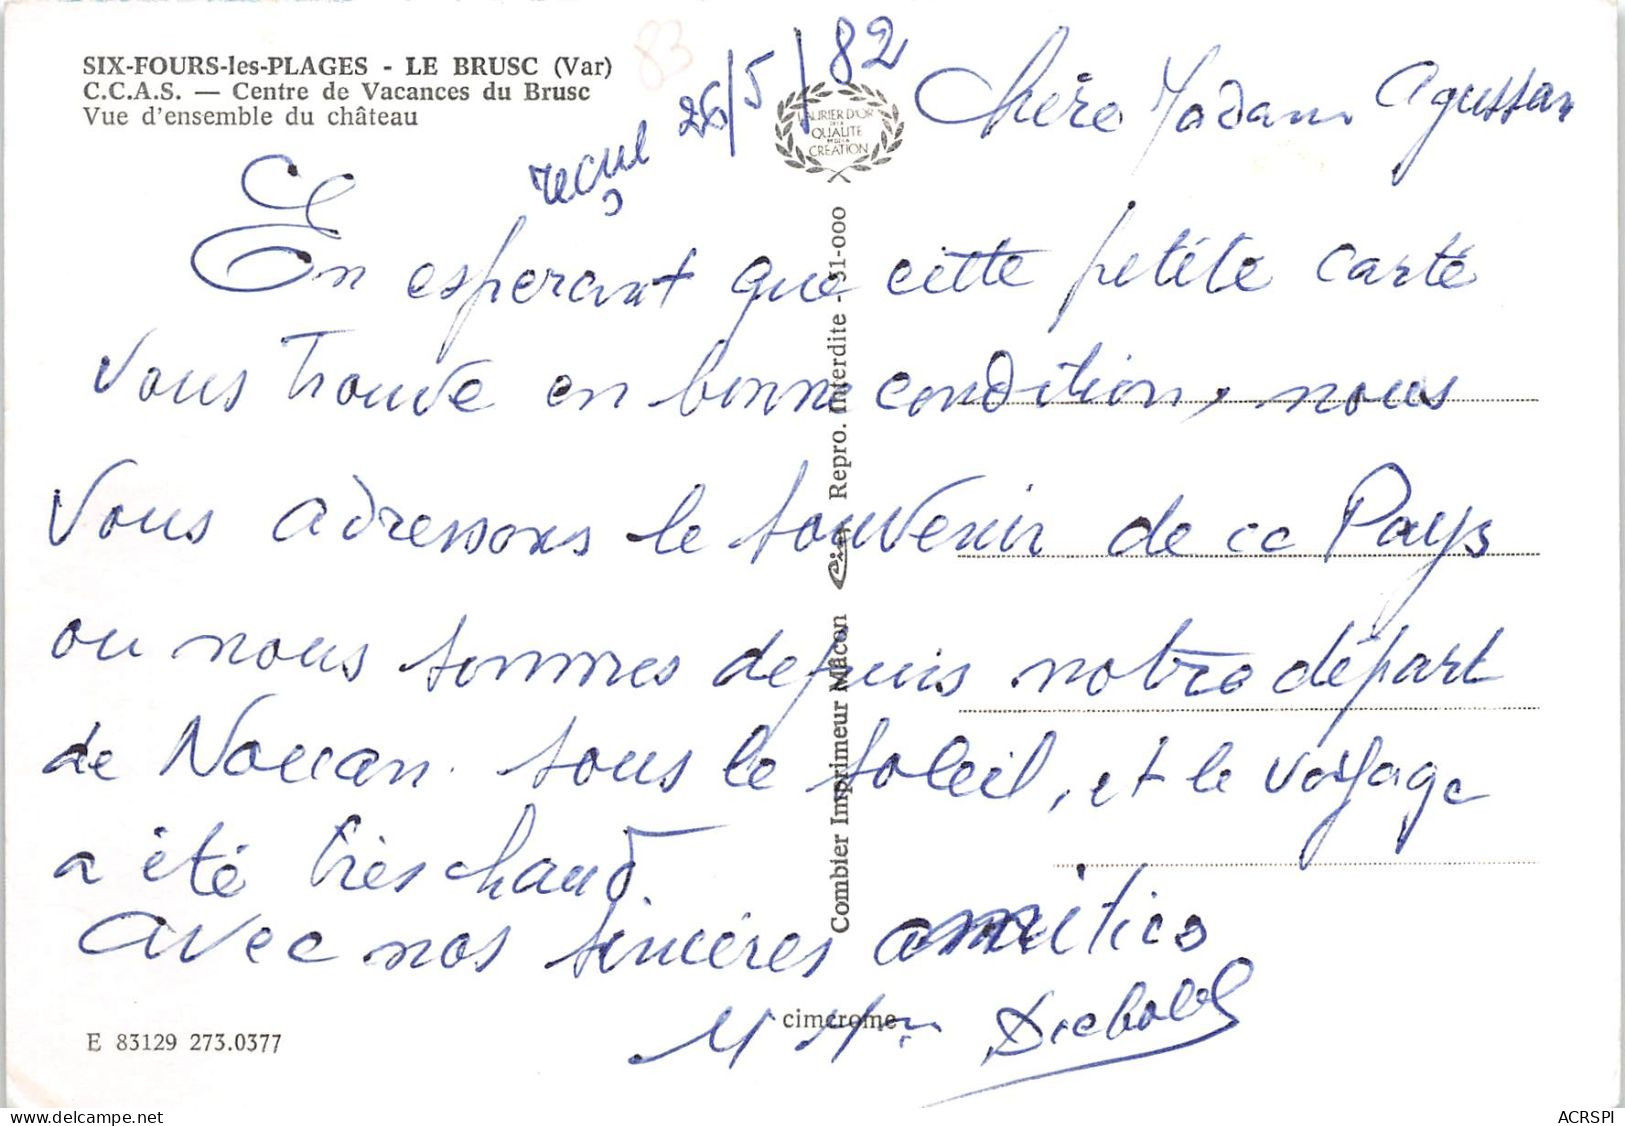 SIX-FOURS-les-PLAGES - LE BRUSC (Var)
C.C.A.S. — Centre de Vacances du Brusc
Vue d'ensemble du château
83
reçue 26/5/82
LAURIER D'OR
DE LA
QUALITE
ET DE LA
CREATION
Chère Madame Agussan
En esperant que cette petite carte
vous trouve en bonne condition, nous
vous adressons le souvenir de ce Pays
ou nous sommes depuis notre départ
de Nouan. sous le soleil, et le voyage
a été très chaud.
avec nos sincères amitiés
M Mme Diebold
Combier Imprimeur Mâcon Cim Repro. Interdite - 51-000
cimcrome
E 83129 273.0377
www.delcampe.net
ACRSPI